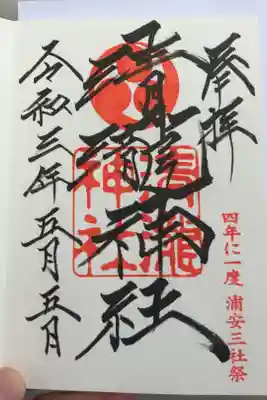 奉拝
四年に一度 浦安三社祭
清瀧神社
清瀧
神社
令和三年五月五日